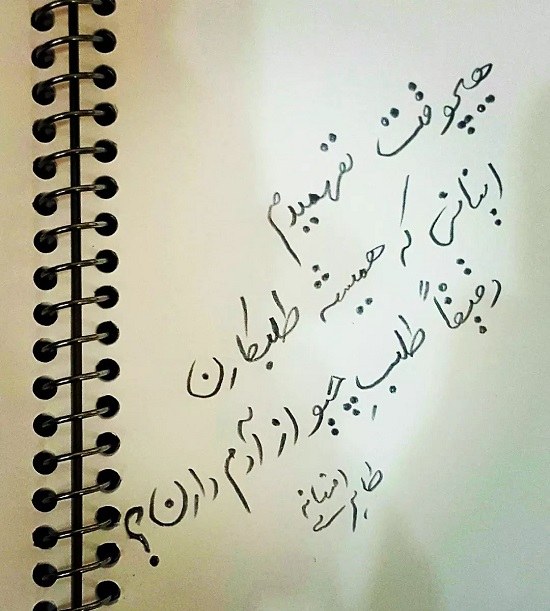 هیچوقت نفهمیدم
اینائی که همیشه طلبکارن
دقیقاً طلبِ چیو از آدم دارن؟
افسانه
طاهری